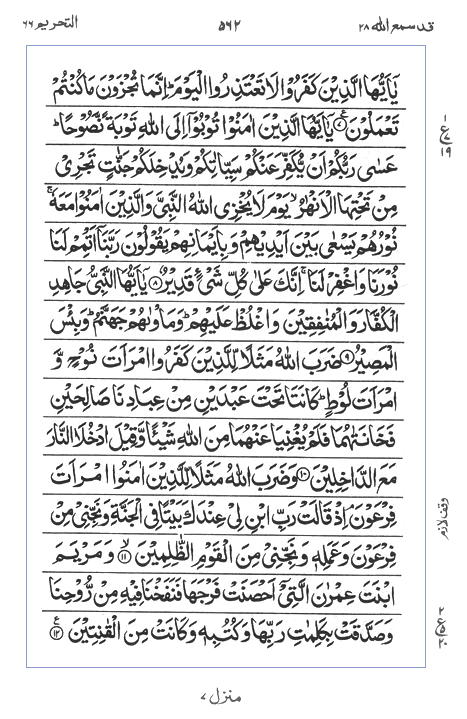 قد سمع الله ٢٨ ٥٦٢ التحريم ٦٦
يٰۤاَيُّهَا الَّذِيْنَ كَفَرُوْا لَا تَعْتَذِرُوا الْيَوْمَ ؕ اِنَّمَا تُجْزَوْنَ مَا كُنْتُمْ
تَعْمَلُوْنَ ﴿٧﴾ يٰۤاَيُّهَا الَّذِيْنَ اٰمَنُوْا تُوْبُوْۤا اِلَى اللّٰهِ تَوْبَةً نَّصُوْحًا ؕ
عَسٰى رَبُّكُمْ اَنْ يُّكَفِّرَ عَنْكُمْ سَيِّاٰتِكُمْ وَيُدْخِلَكُمْ جَنّٰتٍ تَجْرِيْ
مِنْ تَحْتِهَا الْاَنْهٰرُ ۙ يَوْمَ لَا يُخْزِى اللّٰهُ النَّبِيَّ وَالَّذِيْنَ اٰمَنُوْا مَعَهٗ ۚ
نُوْرُهُمْ يَسْعٰى بَيْنَ اَيْدِيْهِمْ وَبِاَيْمَانِهِمْ يَقُوْلُوْنَ رَبَّنَاۤ اَتْمِمْ لَنَا
نُوْرَنَا وَاغْفِرْ لَنَا ۚ اِنَّكَ عَلٰى كُلِّ شَيْءٍ قَدِيْرٌ ﴿٨﴾ يٰۤاَيُّهَا النَّبِيُّ جَاهِدِ
الْكُفَّارَ وَالْمُنٰفِقِيْنَ وَاغْلُظْ عَلَيْهِمْ ؕ وَمَاْوٰىهُمْ جَهَنَّمُ ؕ وَبِئْسَ
الْمَصِيْرُ ﴿٩﴾ ضَرَبَ اللّٰهُ مَثَلًا لِّلَّذِيْنَ كَفَرُوا امْرَاَتَ نُوْحٍ وَّ
امْرَاَتَ لُوْطٍ ؕ كَانَتَا تَحْتَ عَبْدَيْنِ مِنْ عِبَادِنَا صَالِحَيْنِ
فَخَانَتٰهُمَا فَلَمْ يُغْنِيَا عَنْهُمَا مِنَ اللّٰهِ شَيْـًٔا وَّقِيْلَ ادْخُلَا النَّارَ
مَعَ الدّٰخِلِيْنَ ﴿١٠﴾ وَضَرَبَ اللّٰهُ مَثَلًا لِّلَّذِيْنَ اٰمَنُوا امْرَاَتَ
فِرْعَوْنَ ۘ اِذْ قَالَتْ رَبِّ ابْنِ لِيْ عِنْدَكَ بَيْتًا فِى الْجَنَّةِ وَنَجِّنِيْ مِنْ
فِرْعَوْنَ وَعَمَلِهٖ وَنَجِّنِيْ مِنَ الْقَوْمِ الظّٰلِمِيْنَ ﴿١١﴾ وَمَرْيَمَ
ابْنَتَ عِمْرٰنَ الَّتِيْۤ اَحْصَنَتْ فَرْجَهَا فَنَفَخْنَا فِيْهِ مِنْ رُّوْحِنَا
وَصَدَّقَتْ بِكَلِمٰتِ رَبِّهَا وَكُتُبِهٖ وَكَانَتْ مِنَ الْقٰنِتِيْنَ ﴿١٢﴾
وقف لازم
منزل ٧